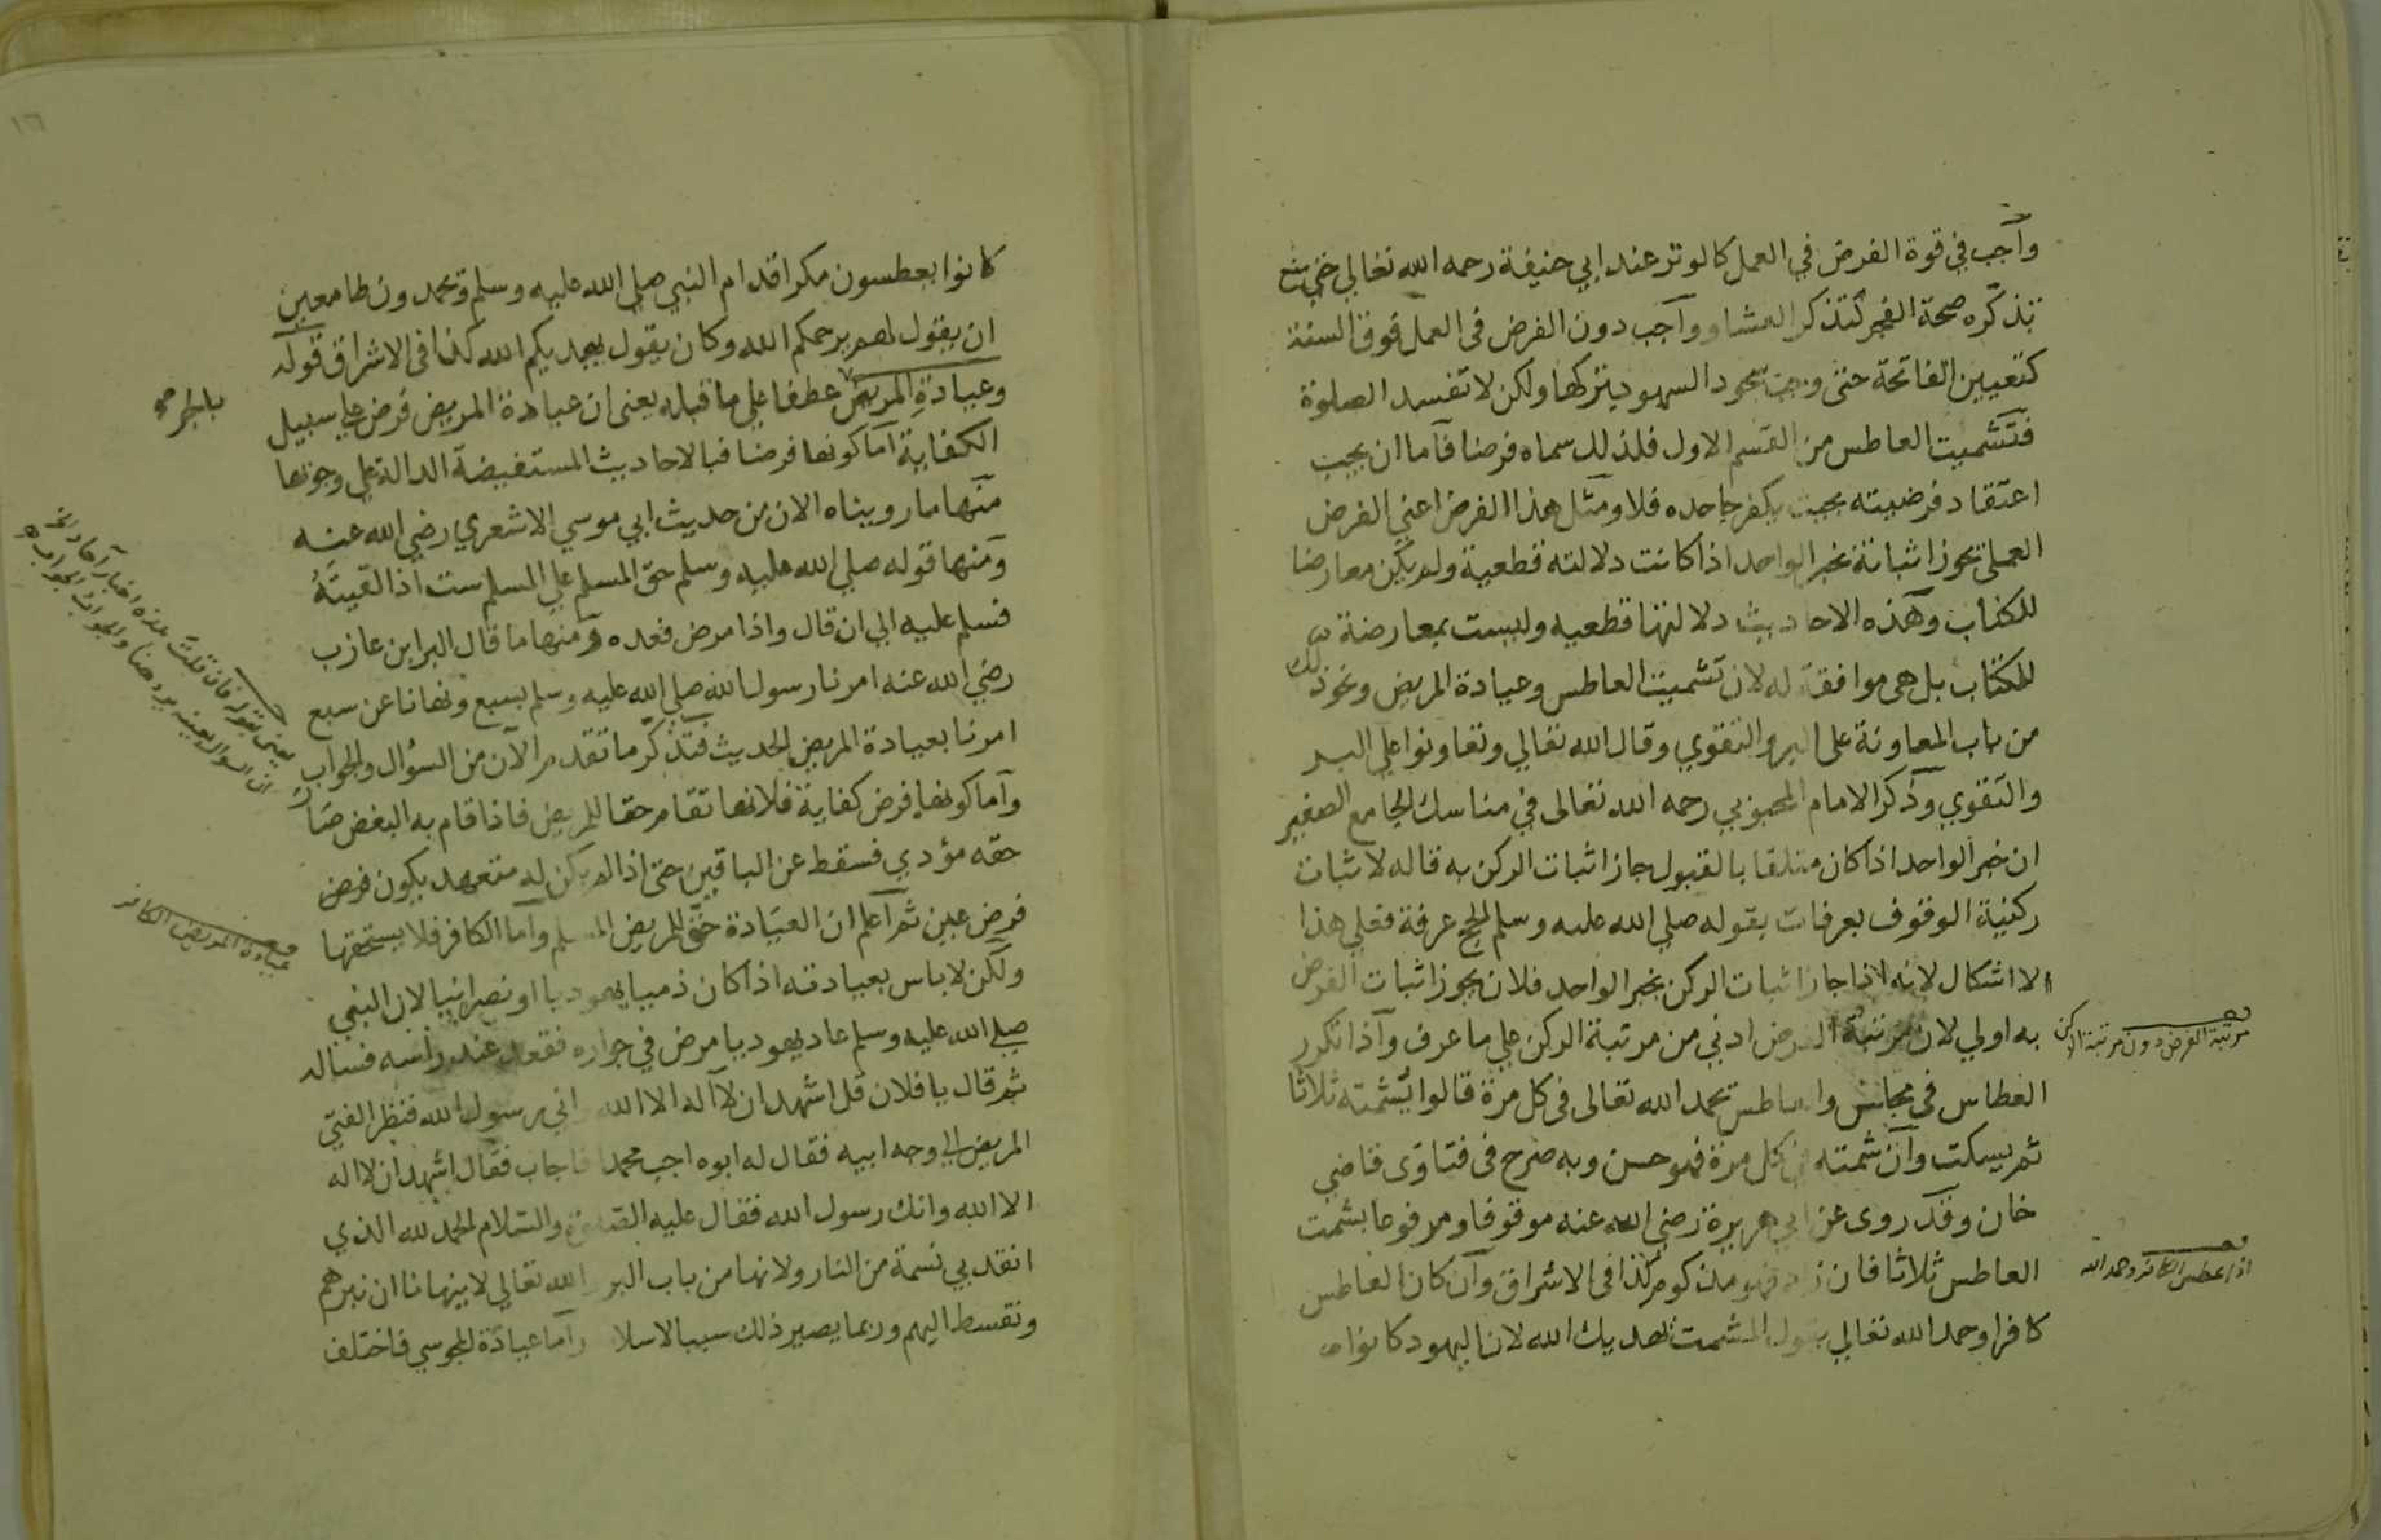 واجب في قوة الفرض في العمل كالوتر عند ابي حنيفة رحمه الله تعالي حتى يمنع
تذكره صحة الفجر كتذكر العشا وواجب دون الفرض فى العمل فوق السنة
كتعيين الفاتحة حتى وجب سجود السهو بتركها ولكن لا تفسد الصلوة
فتشميت العاطس من القسم الاول فلذلك سماه فرضا فآما ان يجب
اعتقاد فرضيته بحيث يكفر جاحده فلا ومثل هذا الفرض اعني الفرض
العملى يجوز اثباته بخبر الواحد اذا كانت دلالته قطعية ولم يكن معارضا
للكتاب وهذه الاحاديث دلالتها قطعيه وليست بمعارضة
للكتاب بل هى موافقة له لان تشميت العاطس وعيادة المريض ونحو ذلك
من باب المعاونة على البر والتقوي وقال الله تعالي وتعاونوا علي البر
والتقوي وذكر الامام المحبوبي رحمه الله تعالى في مناسك الجامع الصغير
ان خبر الواحد اذا كان متلقا بالقبول جاز اثبات الركن به قاله لاثبات
ركنية الوقوف بعرفات بقوله صلي الله عليه وسلم الحج عرفة فعلي هذا
لا اشكال لانه اذا جاز اثبات الركن بخبر الواحد فلان يجوز اثبات الفرض
به اولي لان مرتبة الفرض ادني من مرتبة الركن علي ما عرف وآذا تكرر
العطاس في مجلس والعاطس يحمد الله تعالى فى كل مرة قالوا يشمته ثلاثا
ثم يسكت وآن شمته في كل مرة فهو حسن وبه صرح فى فتاوى قاضي
خان وقد روى عن ابي هريرة رضي الله عنه موقوفا ومرفوعا يشمت
العاطس ثلاثا فان زاد فهو مزكوم كذا فى الاشراق وآن كان العاطس
كافرا وحمد الله تعالي يقول المشمت يهديك الله لان اليهود كانوا
مرتبة الفرض دون مرتبة الركن
اذا عطس الكافر وحمد الله
كانوا يعطسون مكرا قدام النبي صلي الله عليه وسلم ويحمدون طامعين
ان يقول لهم يرحمكم الله وكان يقول يهديكم الله كذا فى الاشراق قوله
وعيادة المريض عطفا علي ما قبله يعنى ان عيادة المريض فرض علي سبيل
الكفاية آما كونها فرضا فبالاحاديث المستفيضة الدالة علي وجوبها
منها ما رويناه الان من حديث ابي موسي الاشعري رضي الله عنه
ومنها قوله صلي الله عليه وسلم حق المسلم علي المسلم ست اذا لقيته
فسلم عليه الي ان قال واذا مرض فعده ومنها ما قال البرا بن عازب
رضي الله عنه امرنا رسول الله صلي الله عليه وسلم بسبع ونهانا عن سبع
امرنا بعيادة المريض الحديث فتذكر ما تقدم الآن من السؤال والجواب
وآما كونها فرض كفاية فلانها تقام حقا للمريض فاذا قام به البعض صار
حقه مؤدي فسقط عن الباقين حتى اذا لم يكن له متعهد يكون فرض
فرض عين ثم آعلم ان العيادة حق للمريض المسلم وآما الكافر فلا يستحقها
ولكن لا باس بعيادته اذا كان ذميا يهوديا او نصرانيا لان النبي
صلي الله عليه وسلم عاد يهوديا مرض في جواره فقعد عند راسه فساله
ثم قال يا فلان قل اشهد ان لا آله الا الله واني رسول الله فنظر الفتي
المريض الي وجه ابيه فقال له ابوه اجب محمدا فاجاب فقال اشهد ان لا اله
الا الله وانك رسول الله فقال عليه الصلوة والسلام الحمد لله الذي
انقذ بي نسمة من النار ولانها من باب البر الله تعالي لا ينهانا ان نبرهم
ونقسط اليهم وربما يصير ذلك سببا لاسلا وآما عيادة المجوسي فاختلف
بالجر صح
يعنى بقوله فان قلت هذه اخبار آحاد
ان السوال بعينه يرد هنا والجواب الجواب
عيادة المريض الكافر
١٦